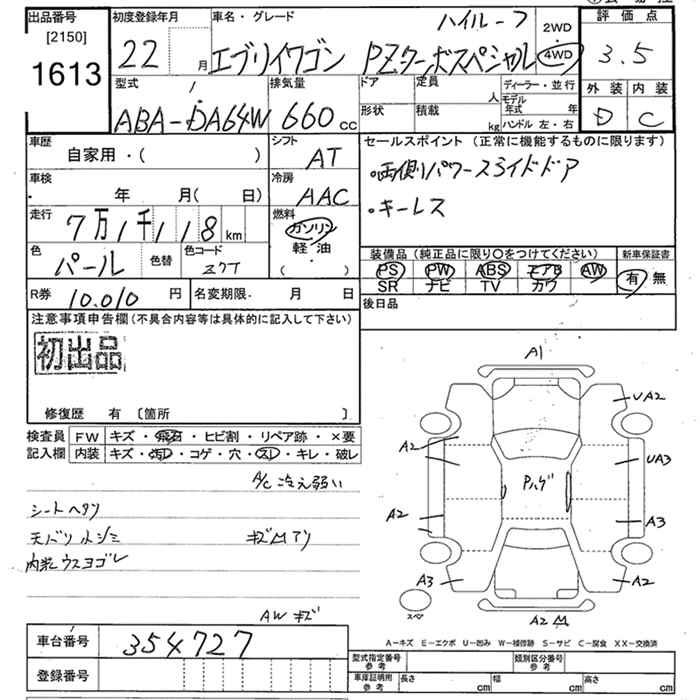 出品番号
[2150]
1613
初度登録年月
22 月
車名・グレード
ハイルーフ
エブリイワゴン PZターボスペシャル
2WD
・
4WD
評価点
3.5
外装 内装
D C
型式
ABA-DA64W
排気量
660 cc
ドア
形状
定員 人
積載 kg
ディーラー・並行
モデル年式 年
ハンドル 左・右
車歴
自家用・( )
シフト
AT
車検
年 月( 日)
冷房
AAC
走行
7万1千118 km
燃料
ガソリン
軽・油
( )
色
パール
色替
色コード
Z7T
R券
10.010 円
名変期限. 月 日
セールスポイント(正常に機能するものに限ります)
・両側パワースライドドア
・キーレス
装備品(純正品に限り〇をつけてください)
新車保証書
PS PW ABS エアB AW
SR ナビ TV カワ
有・無
後日品
注意事項申告欄(不具合内容等は具体的に記入して下さい)
初出品
修復歴 有 〔箇所 〕
検査員記入欄
FW キズ・飛石・ヒビ割・リペア跡・×要
内装 キズ・汚レ・コゲ・穴・スレ・キレ・破レ
A/C 冷え弱い
シートヘタリ
天バリ 小ジミ
キズM アリ
内装ウスヨゴレ
AW キズ
車台番号
354727
登録番号
A1
UA2
A2
UA3
Pハゲ
A2
A3
A3
A2
スペア
A2 M
A-キズ E-エクボ U-凹み W-補修跡 S-サビ C-腐食 XX-交換済
型式指定番号 参考
類別区分番号 参考
車庫証明用 参考
長さ cm
幅 cm
高さ cm